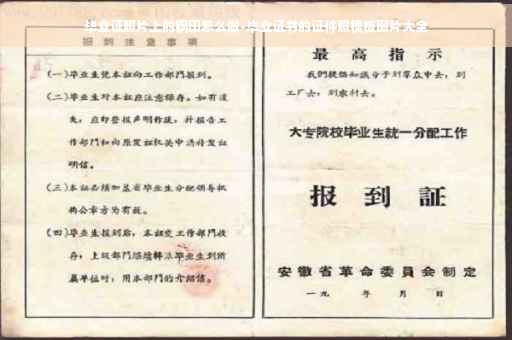 毕业证照片上的钢印怎么做 毕业证书的证件照模板图片大全
报到注意事项
(一)毕业生凭本证向工作部门报到。
(二)毕业生对本证应注意保存。如有遗
失,应即登报声明作废,并报告工
作部门和向原发证机关申请补发证
明信。
(三)本证必须加盖省毕业生分配领导机
构公章方为有效。
(四)毕业生报到后,本证交工作部门收
存,上级部门继续转派毕业生到所
属单位时,用本部门的介绍信。
最高指示
我们提倡知识分子到群众中去,到
工厂去,到农村去。
大专院校毕业生統一分配工作
报到証
安徽省革命委員会制定
一九 年 月 日